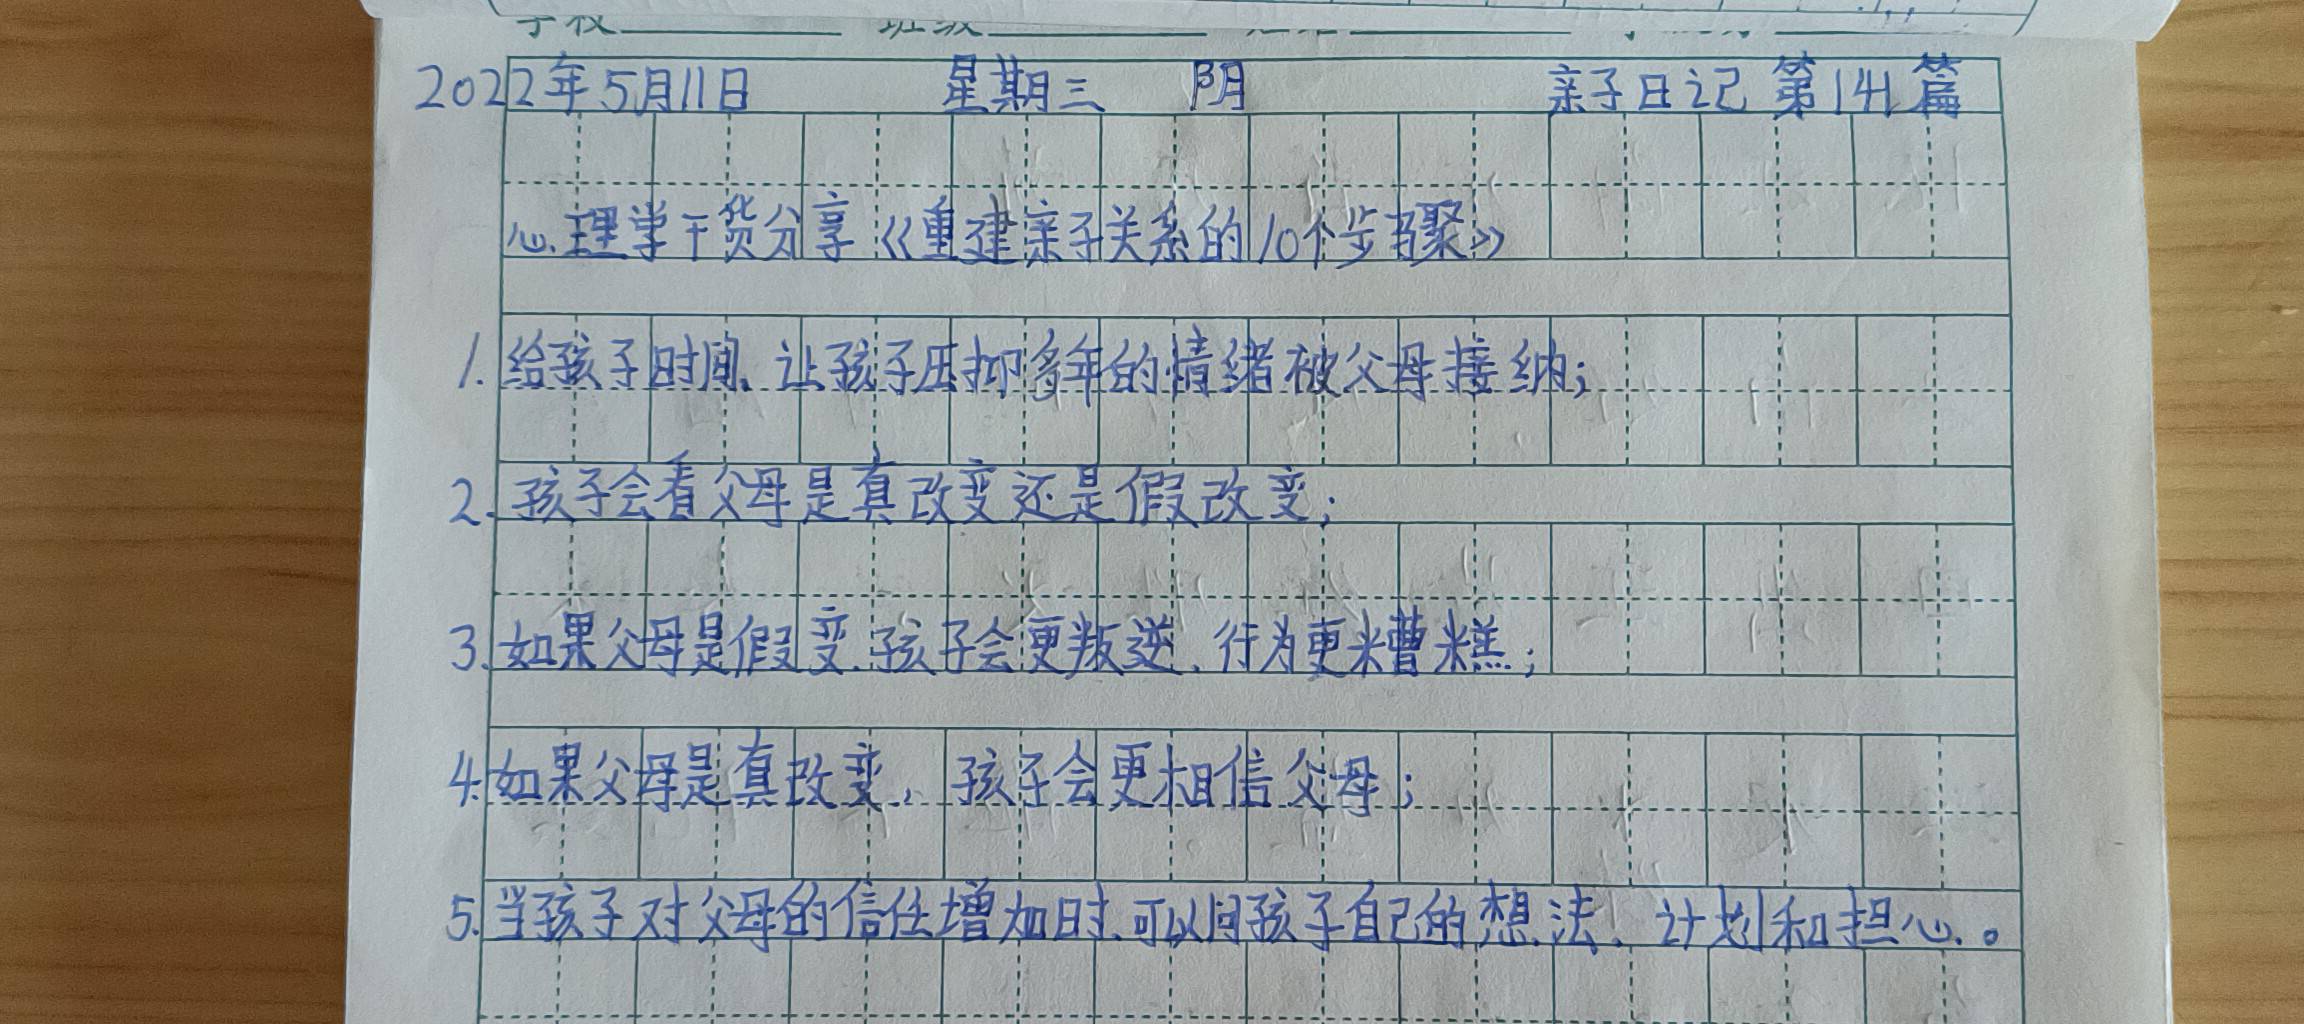 2022年5月11日 星期三 阴 亲子日记 第141篇
心理学干货分享《重建亲子关系的10个步骤》
1. 给孩子时间、让孩子压抑多年的情绪被父母接纳;
2. 孩子会看父母是真改变还是假改变;
3. 如果父母是假变、孩子会更叛逆、行为更糟糕;
4. 如果父母是真改变, 孩子会更相信父母;
5. 当孩子对父母的信任增加时、可以问孩子自己的想法、计划和担心。